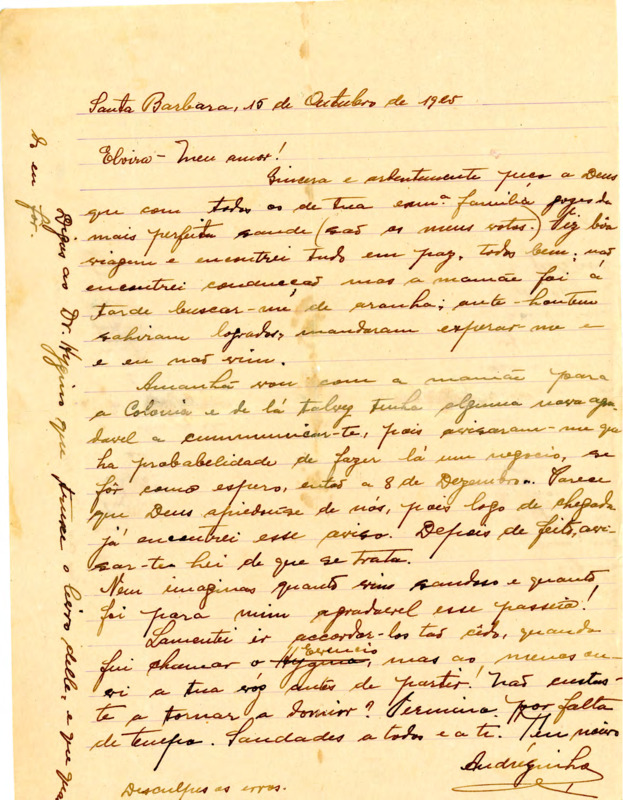 Santa Barbara, 15 de Outubro de 1925
Elvira - Meu amor!
Sincera e ardentemente peço a Deus
que com todos os de tua exmª familia gozes da
mais perfeita saude (são os meus votos.) Fiz bôa
viagem e encontrei tudo em paz, todos bem; não
encontrei conducção mas a mamãe foi á
tarde buscar-me de aranha; ante-hontem
sahiram logrados, mandaram esperar-me e
e eu não vim.
Amanhã vou com a mamãe para
a Colonia e de lá talvez tenha alguma nova agra-
davel a communicar-te, pois avisaram-me que
ha probabilidade de fazer lá um negocio, se
fôr como espero, então a 8 de Dezembro... Parece
que Deus apiedou-se de nós, pois logo de chegada
já encontrei esse aviso. Depois de feito, avi-
sar-te hei de que se trata.
Nem imaginas quanto vim saudoso e quanto
foi para mim agradavel esse passeio!
Lamentei ir accordar-los tão cêdo, quando
fui chamar o Hygino, mas ao menos ou-
vi a tua vóz antes de partir! Não custas-
te a tornar a dormir? Termino por falta
de tempo. Saudades a todos e a ti. Teu noivo
Andrézinho
Desculpes os erros.
Digas ao Dr. Hygino que trouxe o livro delle, e que
eu fôr.